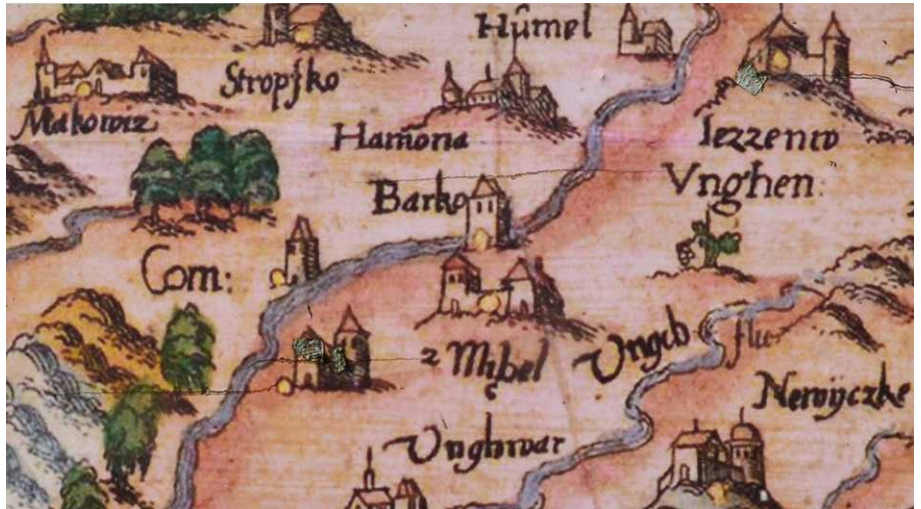 Hũmel
Stropſko
Makowiz
Ham̃ona
Iezzenw
Barko
Vnghen:
Com:
z Mihel
Vngh flu
Newÿczke
Vnghwar